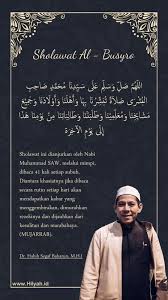 Sholawat Al - Busyro
اللَّهُمَّ صَلِّ وَسَلِّمْ عَلَى سَيِّدِنَا مُحَمَّدٍ صَاحِبِ
الْبُشْرَى صَلَاةً تُبَشِّرُنَا بِهَا وَأَهْلَنَا وَأَوْلَادَنَا وَجَمِيْعَ
مَشَايِخِنَا وَمُعَلِّمِيْنَا وَطَلَبَتِنَا وَطَالِبَاتِنَا مِنْ يَوْمِنَا هٰذَا
إِلَى يَوْمِ الْآخِرَةِ
Sholawat ini dianjurkan oleh Nabi
Muhammad SAW, melalui mimpi,
dibaca 41 kali setiap subuh.
Diantara khasiatnya jika dibaca
secara rutin setiap hari akan
mendapatkan kabar yang
menggembirakan, dimurahkan
rezekinya dan dijauhkan dari
kesulitan dan marabahaya.
(MUJARRAB).
Dr. Habib Segaf Baharun, M.H.I
www.Hilyah.id